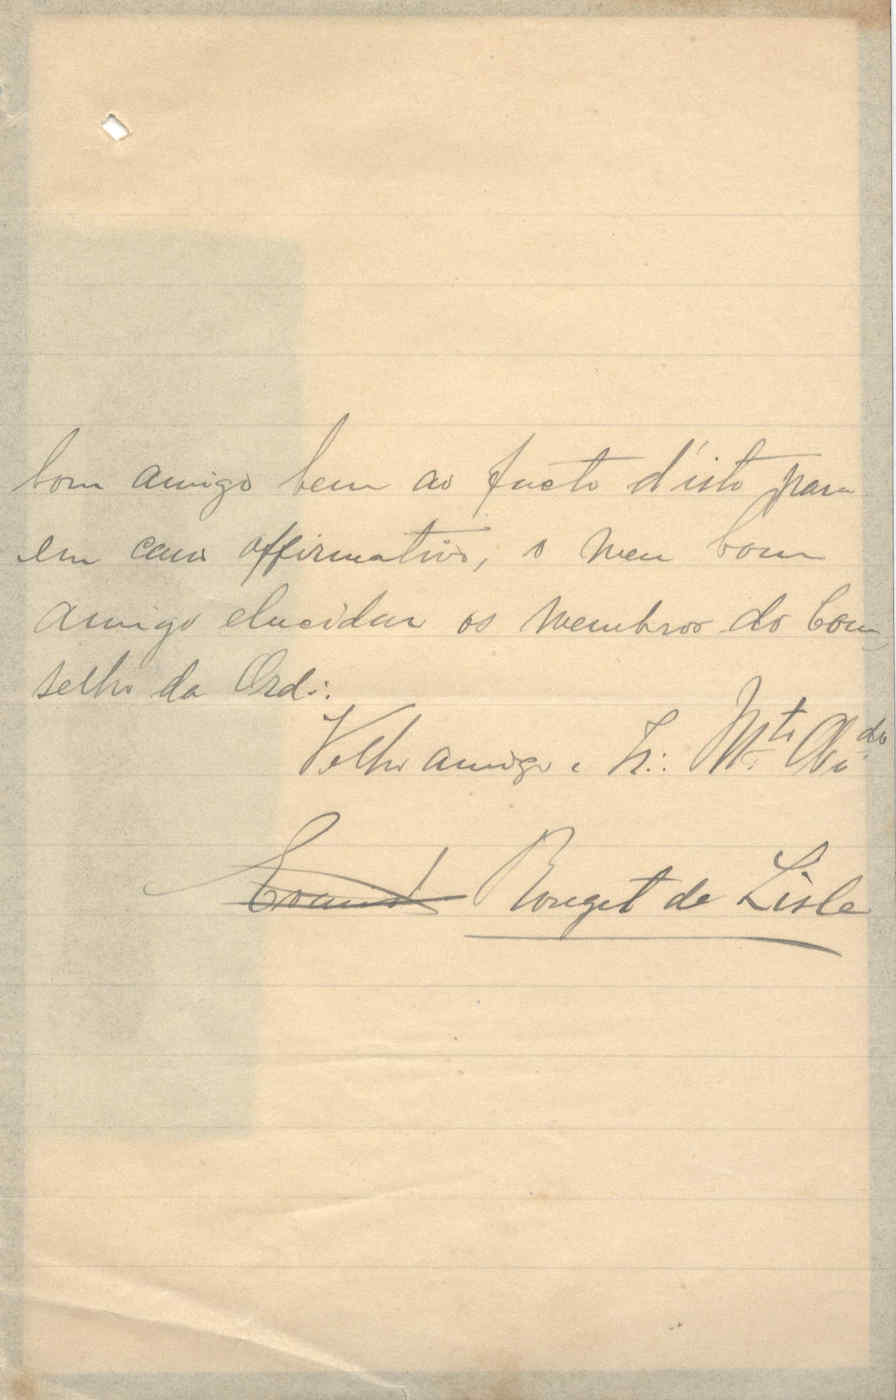 bom amigo bem ao facto d'isto para
em caso affirmativo, o meu bom
amigo elucidar os membros do Con-
selho da Ord∴
Velho amigo e Ir∴ M.to Obg.do
Rouget de Lisle